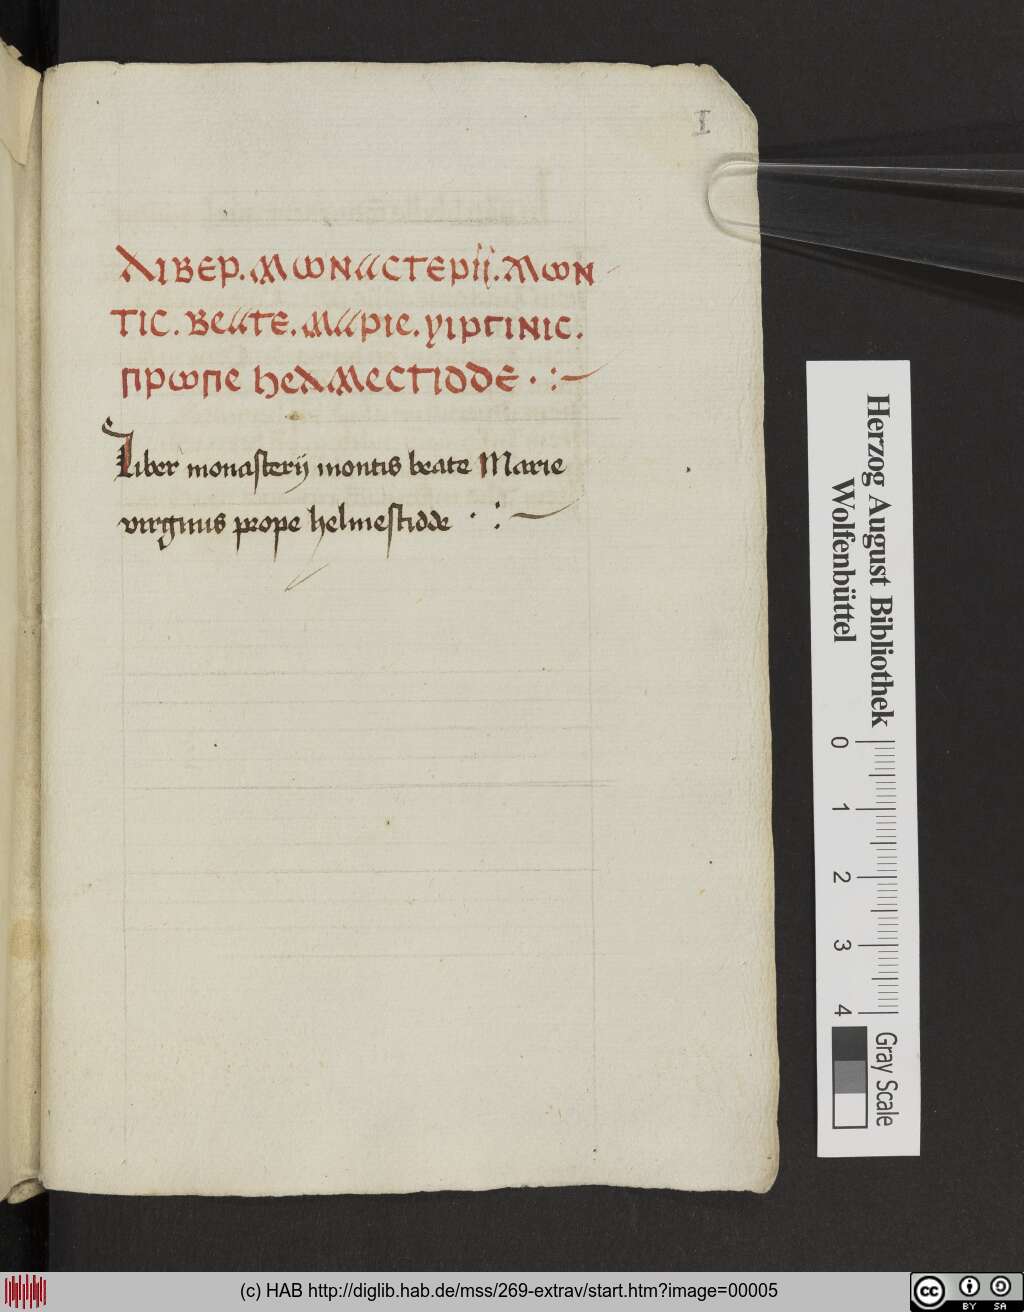 I
λιβερ.μωναϲτεριι.μων
τιϲ.βεατε.μαριε.υιργινιϲ.
πρωπε hελμεϲτιδδε · :~
Liber monasterij montis beate Marie
virginis prope helmestidde · :~
Herzog August Bibliothek
Wolfenbüttel
0 1 2 3 4
Gray Scale
(c) HAB http://diglib.hab.de/mss/269-extrav/start.htm?image=00005
cc BY SA